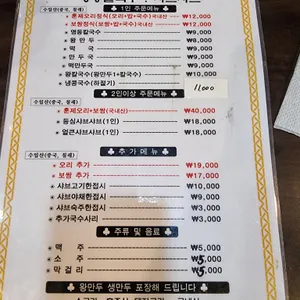 수입산(중국, 칠레) ♣ 1인 주문메뉴 ♣
• 훈제오리정식(오리+밥+국수)국내산 ₩12,000
• 보쌈정식(보쌈+밥+국수)국내산 ₩12,000
• 영웅칼국수 ₩9,000
• 왕만두 ₩9,000
• 떡국 ₩9,000
• 만두국 ₩9,000
• 떡만두국 ₩9,000
• 왕칼국수(왕만두1+칼국수) ₩10,000
• 냉콩국수(하절기) 11,000
수입산(중국, 칠레) ♣ 2인이상 주문메뉴 ♣
• 훈제오리+보쌈(국내산) ₩40,000
• 등심샤브샤브(1인) ₩18,000
• 얼큰샤브샤브(1인) ₩18,000
수입산(중국, 칠레) ♣ 추가메뉴 ♣
• 오리 추가 ₩19,000
• 보쌈 추가 ₩17,000
• 샤브고기한접시 ₩10,000
• 샤브야채한접시 ₩9,000
• 샤브숙주한접시 ₩3,000
• 추가국수사리 ₩3,000
♣ 주류 및 음료 ♣
• 맥주 ₩5,000
• 소주 ₩5,000
• 막걸리 ₩5,000
♣ 왕만두 생만두 포장해 드립니다 ♣